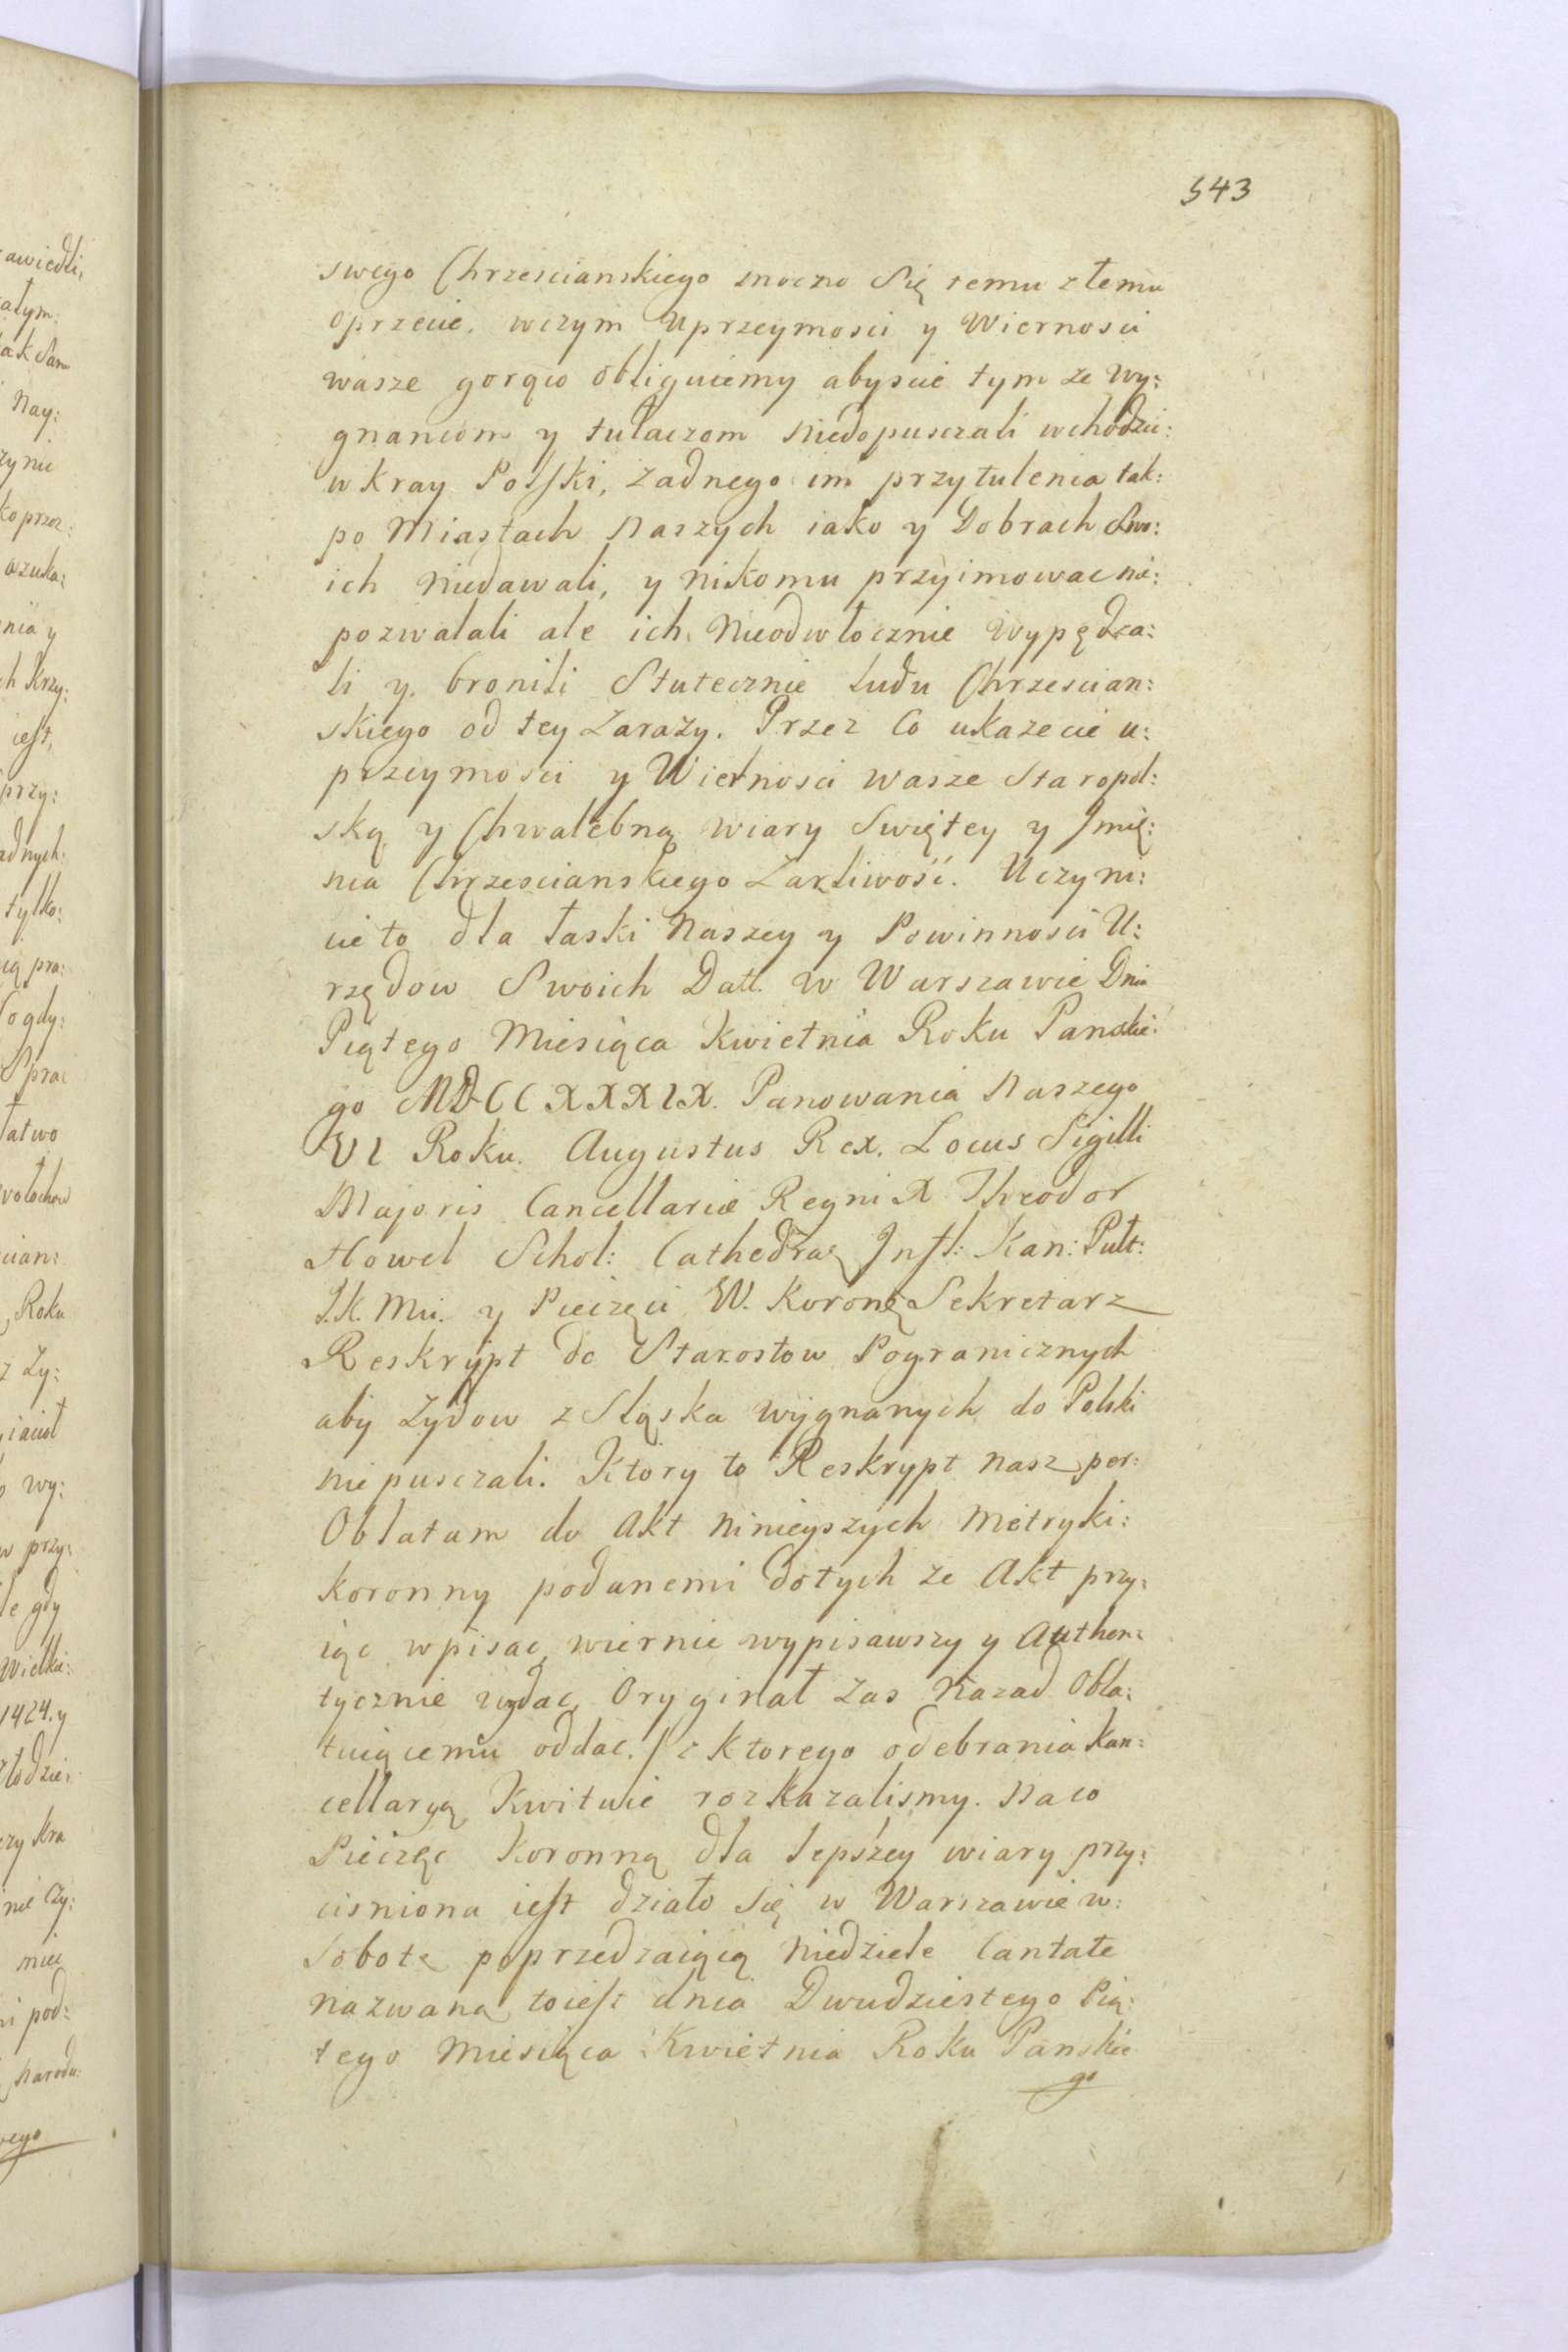 543
swego Chrzescianskiego mocno Się temu złemu
oprzecie. wczym Uprzeymosci y Wiernosci
wasze gorąco obliguiemy abyscie tym ze Wy:
gnancom y tułaczom niedopuszczali wchodzic:
w kray Polski, żadnego im przytulenia tak:
po Miastach Naszych iako y Dobrach Swo:
ich niedawali, y nikomu przyimowac nie:
pozwalali ale ich nieodwłocznie Wypędza:
li y. bronili Statecznie ludu Chrzescian:
skiego od tey Zarazy. Przez Co ukazecie u:
przeymosci y Wiernosci wasze Staropol:
ską y Chwalebną wiary Swiętey y Jmię:
nia Chrzescianskiego Zarliwość. Uczyni:
cie to dla łaski Naszey y Powinnosci U:
rzędow Swoich Datt. w Warszawie Dnia
Piątego Miesiąca Kwietnia Roku Panskie:
go MDCCXXXIX. Panowania Naszego
VI Roku. Augustus Rex. Locus Sigilli
Majoris Cancellariæ Regni X Theodor
Howel Schol: Cathedrae Infl: Kan: Pułt:
J.K. Mci. y Pieczęci W. Koronę Sekretarz
Reskrypt do Starostow Pogranicznych
aby Zydow z Sląska wygnanych do Polski
niepusczali. Ktory to Reskrypt nasz per:
Oblatam do Akt ninieyszych Metryki:
Koronny podanemi dotych ze Akt przy:
iąc wpisac, wiernie wypisawszy y Authen:
tycznie wydac, Oryginał zas nazad Obla:
tuiącemu oddac. / z ktorego odebrania Kan:
cellaryą Kwituie rozkazalismy. Na co
Pieczęc Koronną dla lepszey wiary przy:
cisniona iest działo Się w Warszawie w:
Sobotę poprzedzaiącą Niedziele Cantate
nazwaną toiest dnia Dwudziestego Pią:
tego Miesiąca Kwietnia Roku Panskie
go